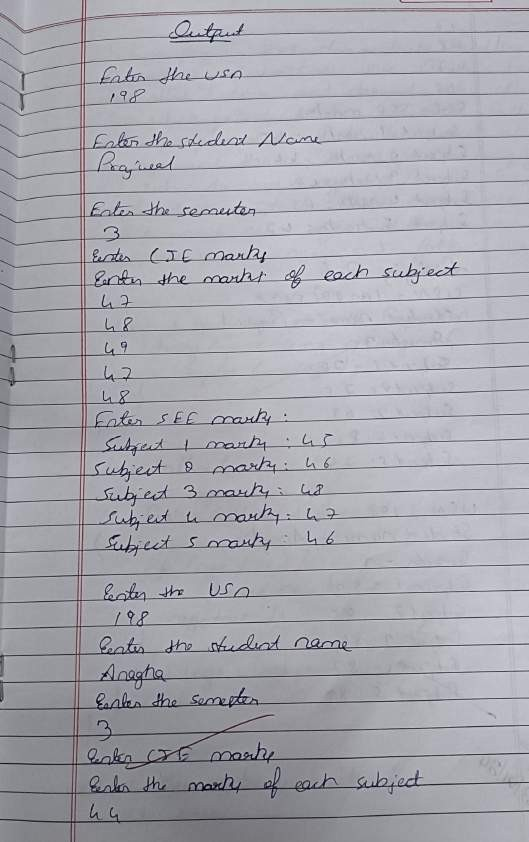 Output
Enter the usn
198
Enter the student Name
Prajwal
Enter the semester
3
Enter CIE marks
Enter the marks of each subject
47
48
49
47
48
Enter SEE marks :
Subject 1 marks : 45
Subject 2 marks : 46
Subject 3 marks : 48
Subject 4 marks : 47
Subject 5 marks : 46
Enter the USn
198
Enter the student name
Anagha
Enter the semester
3
Enter CIE marks
Enter the marks of each subject
44